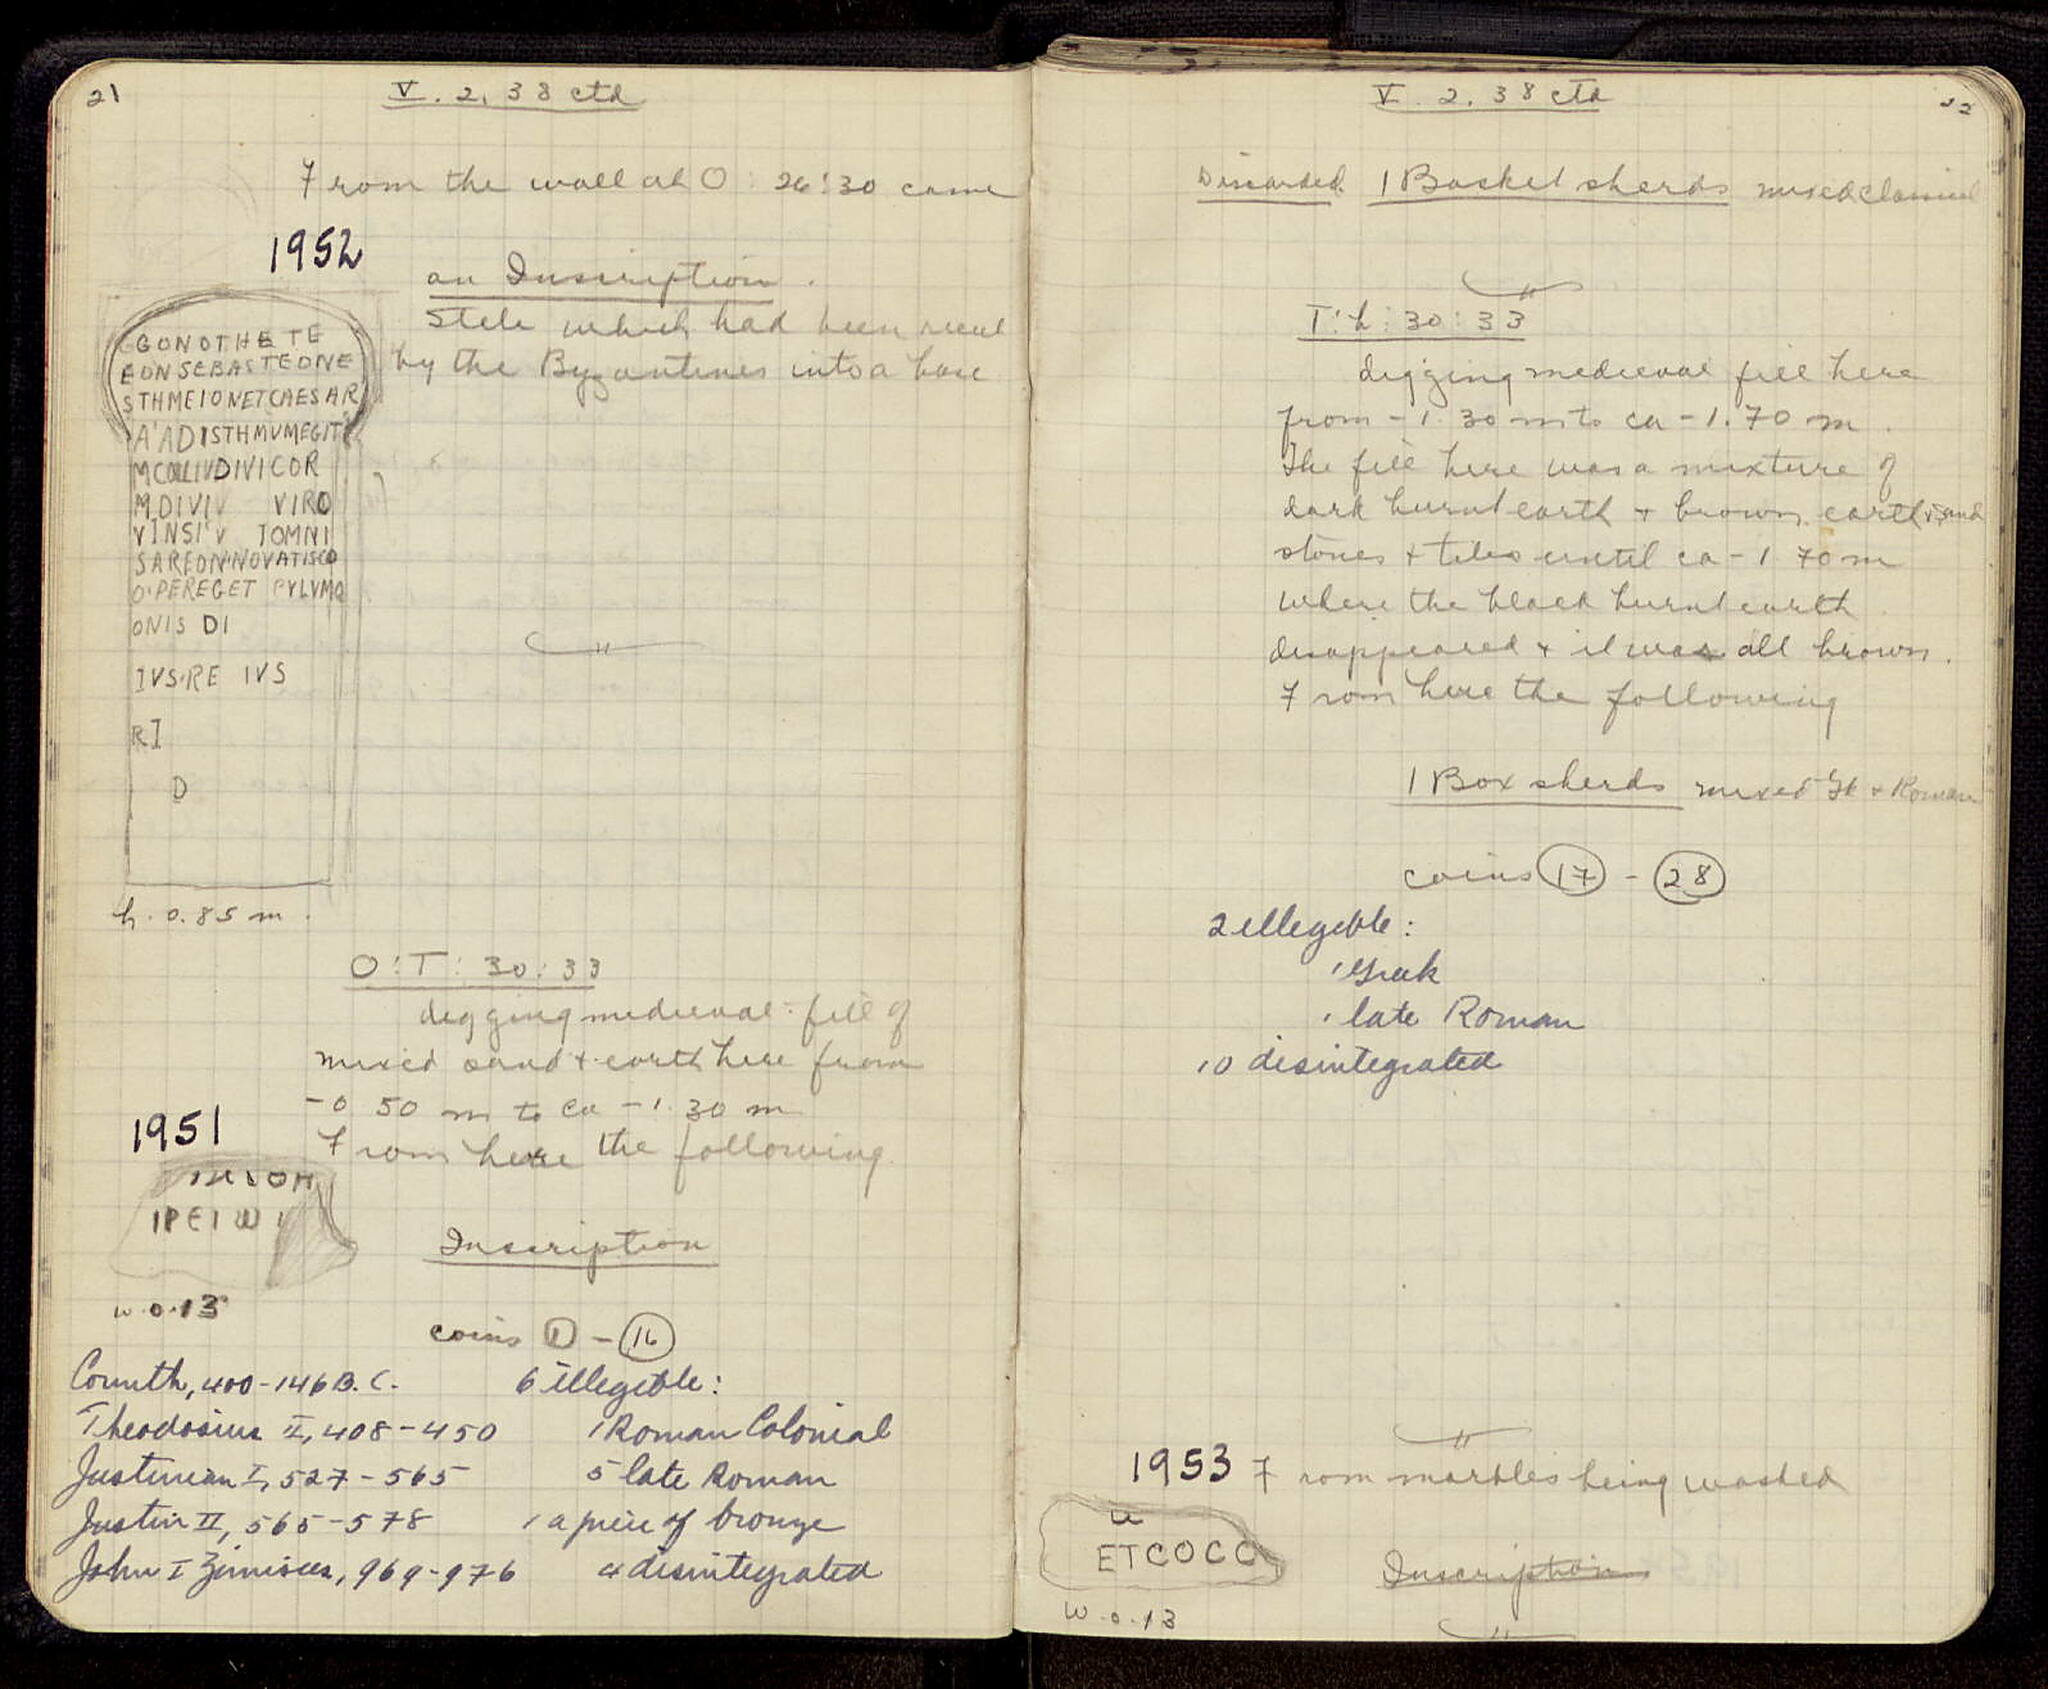 21
V. 2. 38 ctd
From the wall at O : 26:30 came
1952
an Inscription.
Stele which had been recut
by the Byzantines into a base
GONOTHETE
EONSEBASTEONE
STHMEIONETCAESAR
A'ADISTHMVMEGIT
DIVICOR
MDIVIV VIRO
VINSI'V IOMNI
SAREON'NOVATISCO
O·PEREGET PYLVMQ
ONIS DI
IVS·RE IVS
RI
D
h. 0.85 m.
O:T: 30:33
digging medieval fill of
mixed sand + earth here from
-0.50 m to ca -1.30 m
From here the following
1951
IPEIWI
w. 0.13
Inscription
coins 1 - 16
Corinth, 400-146 B.C.
Theodosius II, 408-450
Justinian I, 527-565
Justin II, 565-578
John I Zimisces, 969-976
6 illegible:
1 Roman Colonial
5 late Roman
1 a piece of bronze
4 disintegrated
V. 2. 38 ctd
22
Discarded. 1 Basket sherds mixed classical
T:h:30:33
digging medieval fill here
from -1.30 m to ca -1.70 m.
The fill here was a mixture of
dark burnt earth + brown earth + sand
stones + tiles until ca -1.70 m
where the black burnt earth
disappeared + it was all brown.
From here the following
1 Box sherds mixed Gk + Roman
coins 17 - 28
2 illegible:
1 Greek
1 late Roman
10 disintegrated
1953 From marbles being washed
ETCOCC
Inscription
w. 0.13